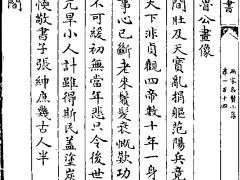 兩宋名賢小集
卷一百十四
書
魯公畫像
間肚及天寶亂捐軀范陽兵竟
天下非貞觀四帝數十年一身
事心已斷老來鬢髮衰慨歎功
不可緩初無當年悲只今後世
元早小人計雖得斯民蓋塗炭
悵敢書子張紳庶幾古人半
閣